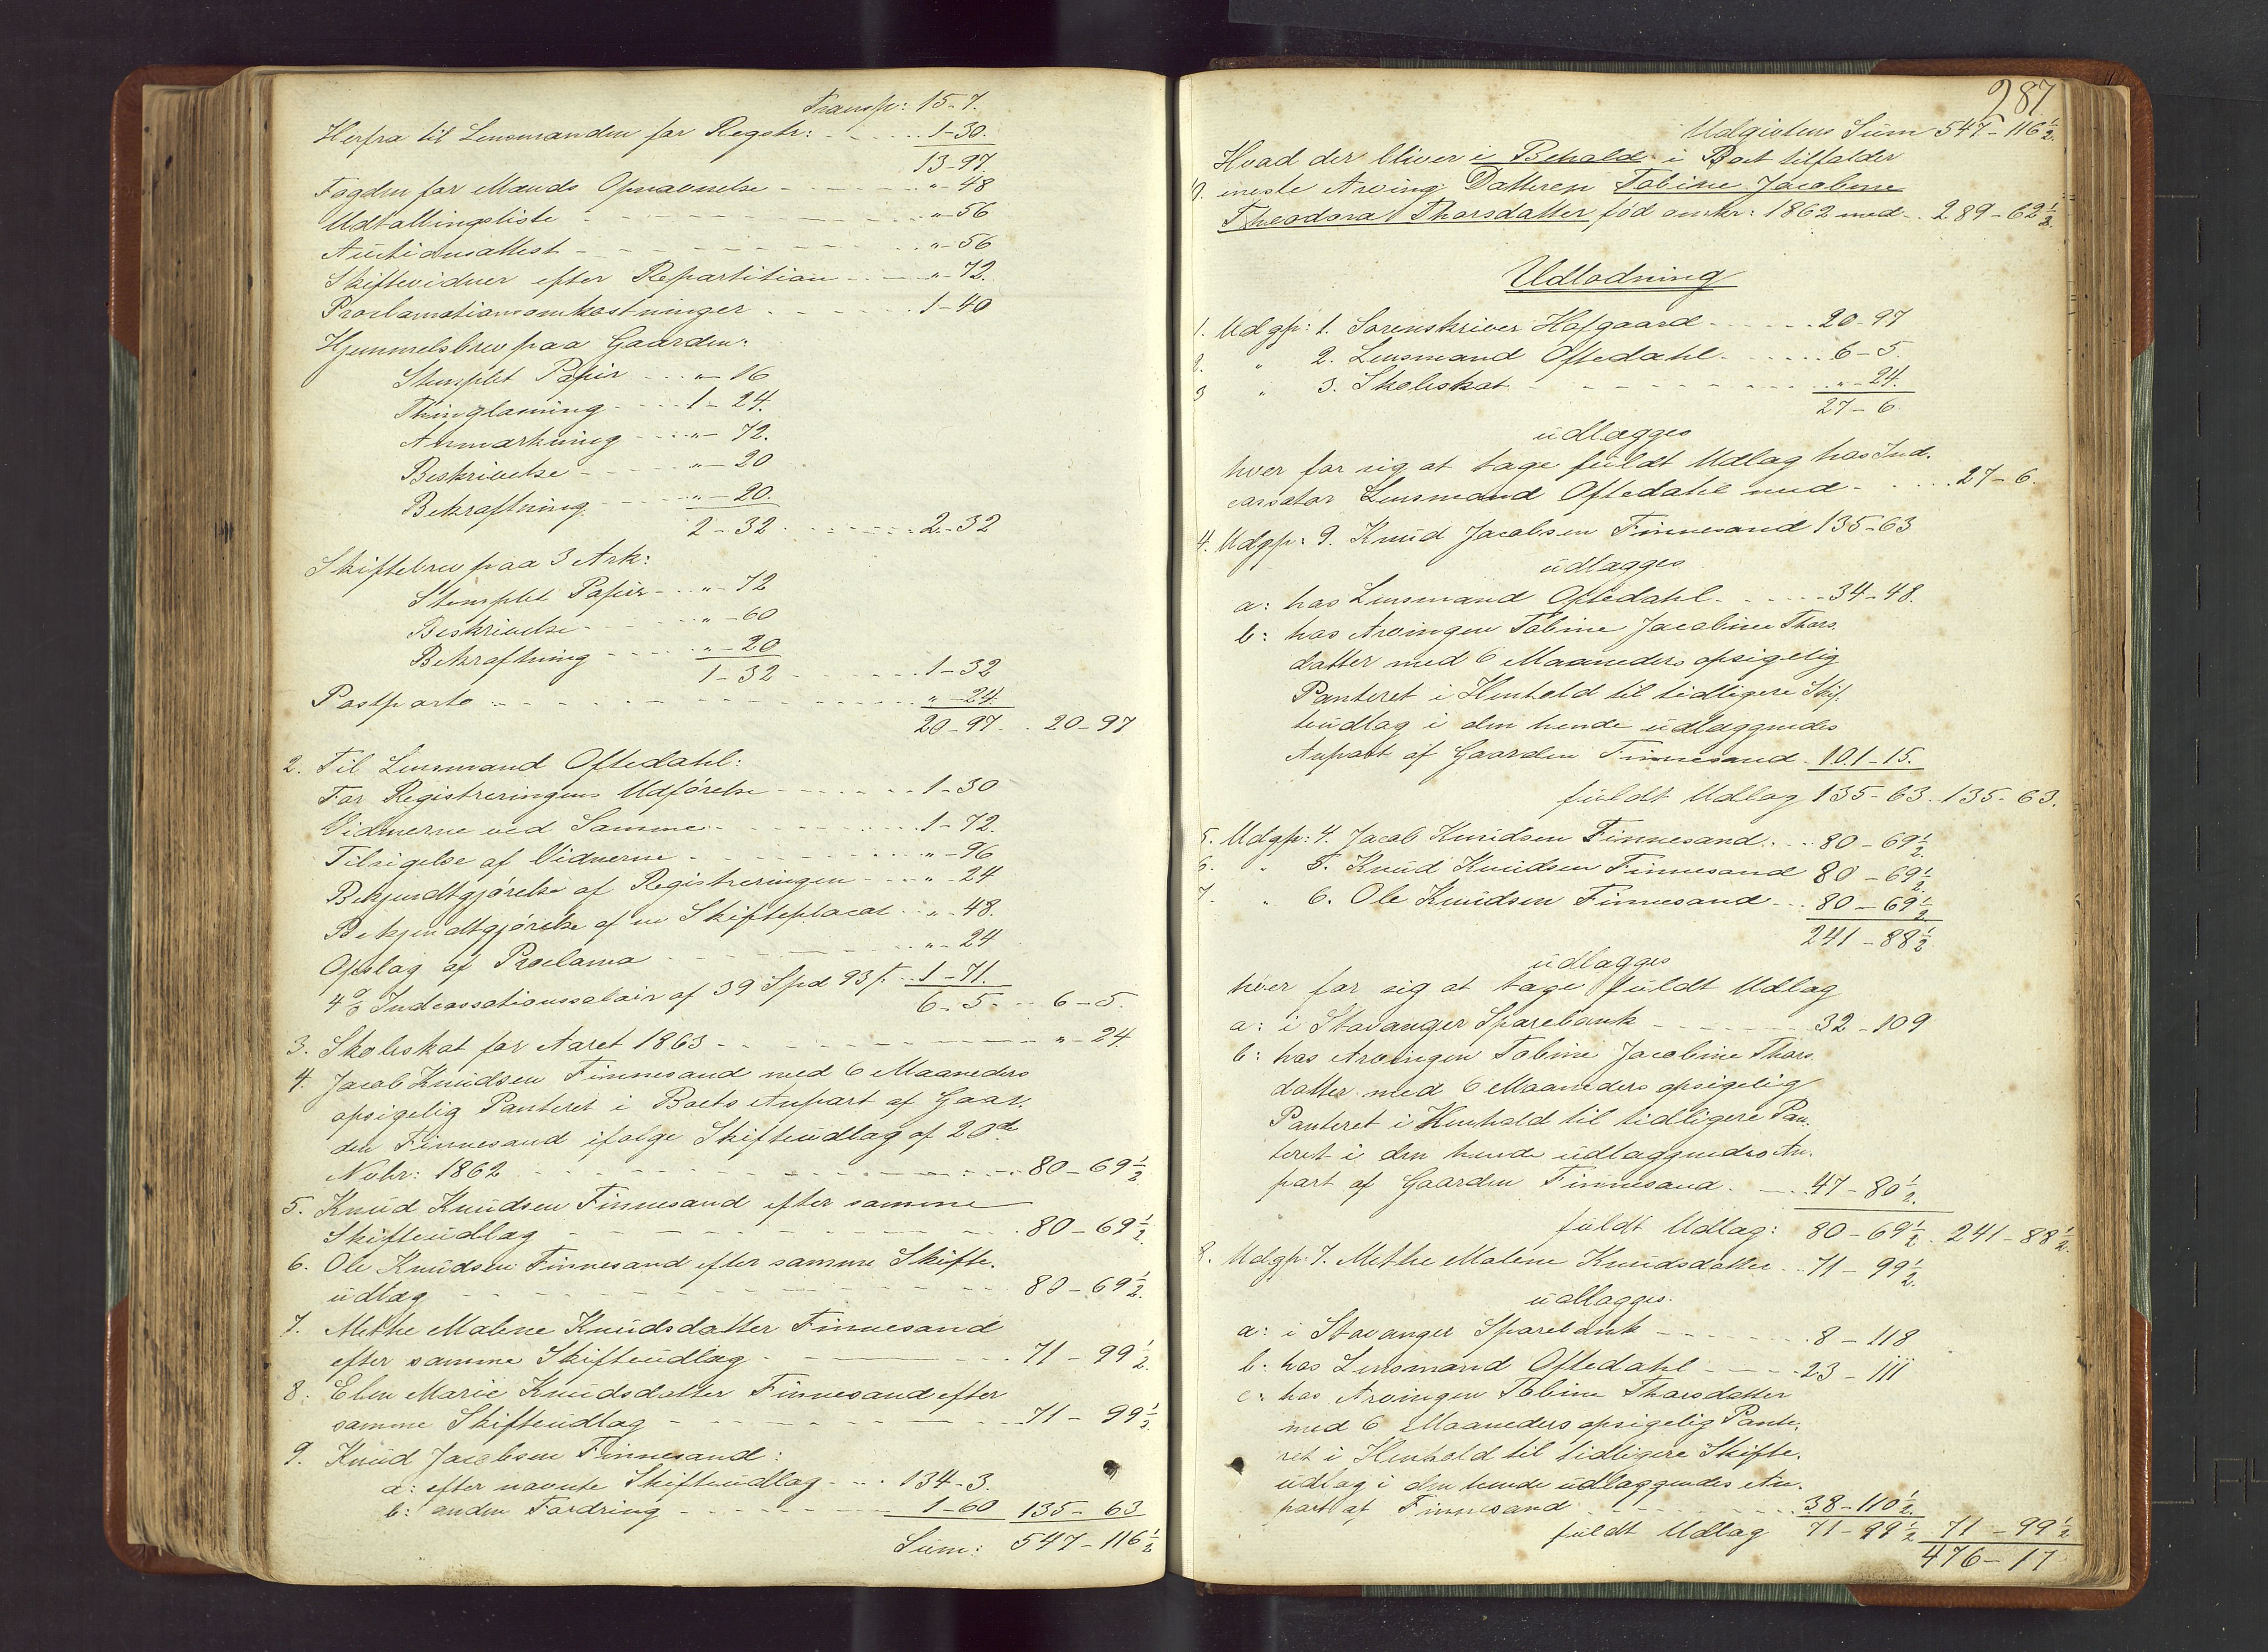 Transp: 15-7.
Herfra til Lensmanden for Registr: - - - - 1-30.
13-97.
Fogden for Mænds Opnævnelse - - - - „-48
Udtallingsliste - - - - „-56
Auctionsattest - - - - „-56
Skiftevidner efter Repartition - - - „-72.
Proclamationsomkostninger - - - - 1-40
Hjemmelsbrev paa Gaarden:
Stemplet Papir - - - „-16
Thinglæsning - - - 1-24.
Anmærkning - - - „-72.
Beskrivelse - - - „-20
Bekræftning - - - „-20.
2-32 - - - - 2-32
Skiftebrev paa 3 Ark:
Stemplet Papir - - „-72
Beskrivelse - - - „-60
Bekræftning - - - „-20
1-32 - - - - 1-32
Postporto - - - - „-24.
20-97 - - 20-97
2. Til Lensmand Oftedahl:
For Registreringens Udførelse - - - - 1-30
Vidnerne ved Samme - - - - 1-72.
Tilsigelse af Vidnerne - - - - „-96
Bekjendtgjørelse af Registreringen - - - „-24
Bekjendtgjørelse af en Skifteplacat - - „-48.
Opslag af Proclama - - - - „-24
4 % Indcassationssalair af 39 Spd 93 s. - 1-71.
6-5. - - 6-5.
3. Skoleskat for Aaret 1863 - - - - „-24.
4. Jacob Knudsen Finnesand med 6 Maaneders
opsigelig Panteret i Boets Anpart af Gaar-
den Finnesand ifølge Skifteudlæg af 20de
Novbr: 1862 - - - - 80-69½
5. Knud Knudsen Finnesand efter samme
Skifteudlæg - - - - 80-69½
6. Ole Knudsen Finnesand efter samme Skifte-
udlæg - - - - 80-69½
7. Methe Malene Knudsdatter Finnesand
efter samme Skifteudlæg - - - - 71-99½
8. Elen Marie Knudsdatter Finnesand efter
samme Skifteudlæg - - - - 71-99½
9. Knud Jacobsen Finnesand:
a: efter nævnte Skifteudlæg - - - 134-3.
b: anden Fordring - - - - 1-60 135-63
Sum: 547-116½
287
Udgiftens Sum 547-116½
Hvad der bliver i Behold i Boet tilfalder
10. eneste Arving Datteren Tobine Jacobine
Theodora Thorsdatter fød omkr: 1862 med - 289-62½
Udlodning
1. Udgp: 1. Sorenskriver Hofgaard - - - - 20-97
2. „ 2. Lensmand Oftedahl - - - - 6-5.
3 „ 3. Skoleskat - - - - „-24.
27-6
udlægges
hver for sig at tage fuldt Udlæg hos Ind-
cassator Lensmand Oftedahl med - - - 27-6.
4. Udgp: 9. Knud Jacobsen Finnesand 135-63
udlægges
a: hos Lensmand Oftedahl - - - - 34-48.
b: hos Arvingen Tobine Jacobine Thors-
datter med 6 Maaneders opsigelig
Panteret i Henhold til tidligere Skif-
teudlæg i den hende udlæggendes
Anpart af Gaarden Finnesand 101-15.
fuldt Udlæg 135-63. 135-63.
5. Udgp: 4. Jacob Knudsen Finnesand - - 80-69½
6. „ 5. Knud Knudsen Finnesand 80-69½
7. „ 6. Ole Knudsen Finnesand - - 80-69½
241-88½
udlægges
hver for sig at tage fuldt Udlæg
a: i Stavanger Sparebank - - - - 32-109
b: hos Arvingen Tobine Jacobine Thors-
datter med 6 Maaneders opsigelig
Panteret i Henhold til tidligere Pan-
teret i den hende udlæggendes An-
part af Gaarden Finnesand - - 47-80½
fuldt Udlæg: 80-69½ 241-88½
8. Udgp: 7. Methe Malene Knudsdatter - - 71-99½
udlægges
a: i Stavanger Sparebank - - - - 8-118
b: hos Lensmand Oftedahl - - - - 23-111
c: hos Arvingen Tobine Thorsdatter
med 6 Maaneders opsigelig Pante-
ret i Henhold til tidligere Skifte-
udlæg i den hende udlæggendes An-
part af Finnesand - - - - 38-110½
fuldt Udlæg 71-99½ 71-99½
476-17